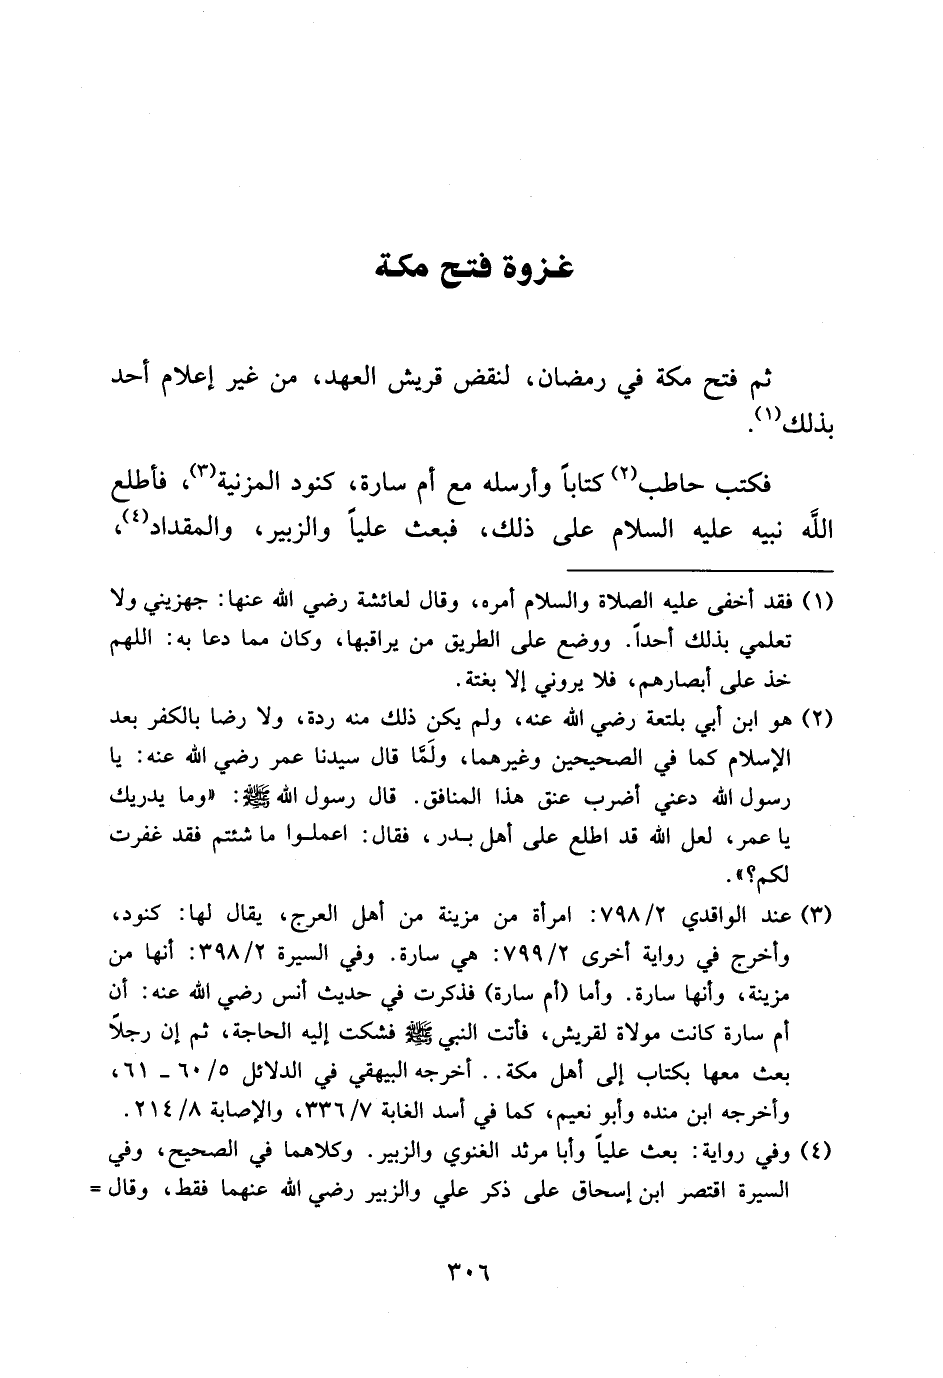 غزوة فتح مكة
ثم فتح مكة في رمضان، لنقض قريش العهد، من غير إعلام أحد
بذلك(١).
فكتب حاطب(٢) كتاباً وأرسله مع أم سارة، كنود المزنية(٣)، فأطلع
اللَّه نبيه عليه السلام على ذلك، فبعث علياً والزبير، والمقداد(٤)،
(١) فقد أخفى عليه الصلاة والسلام أمره، وقال لعائشة رضي الله عنها: جهزيني ولا
تعلمي بذلك أحداً. ووضع على الطريق من يراقبها، وكان مما دعا به: اللهم
خذ على أبصارهم، فلا يروني إلا بغتة.
(٢) هو ابن أبي بلتعة رضي الله عنه، ولم يكن ذلك منه ردة، ولا رضا بالكفر بعد
الإسلام كما في الصحيحين وغيرهما، ولَمَّا قال سيدنا عمر رضي الله عنه: يا
رسول الله دعني أضرب عنق هذا المنافق. قال رسول الله ﷺ: «وما يدريك
يا عمر، لعل الله قد اطلع على أهل بـدر، فقال: اعملـوا ما شئتم فقد غفرت
لكم؟».
(٣) عند الواقدي ٧٩٨/٢: امرأة من مزينة من أهل العرج، يقال لها: كنود،
وأخرج في رواية أخرى ٧٩٩/٢: هي سارة. وفي السيرة ٣٩٨/٢: أنها من
مزينة، وأنها سارة. وأما (أم سارة) فذكرت في حديث أنس رضي الله عنه: أن
أم سارة كانت مولاة لقريش، فأتت النبي ﷺ فشكت إليه الحاجة، ثم إن رجلاً
بعث معها بكتاب إلى أهل مكة.. أخرجه البيهقي في الدلائل ٦٠/٥ ـ ٦١،
وأخرجه ابن منده وأبو نعيم، كما في أسد الغابة ٣٣٦/٧، والإصابة ٢١٤/٨.
(٤) وفي رواية: بعث علياً وأبا مرثد الغنوي والزبير. وكلاهما في الصحيح، وفي
السيرة اقتصر ابن إسحاق على ذكر علي والزبير رضي الله عنهما فقط، وقال =
٣٠٦